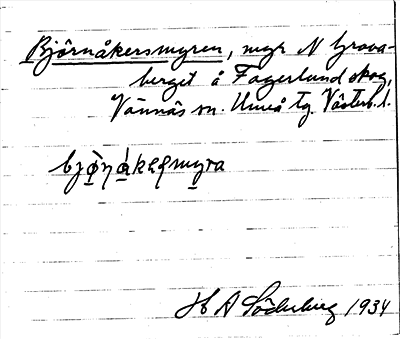 Björnåkersmyren, myr N Grova-
berget å Fagerlund skog,
Vännäs sn. Umeå tg. Västerb. l.
bjȯ̱ṇåkaʂmyra
H A Söderberg 1934